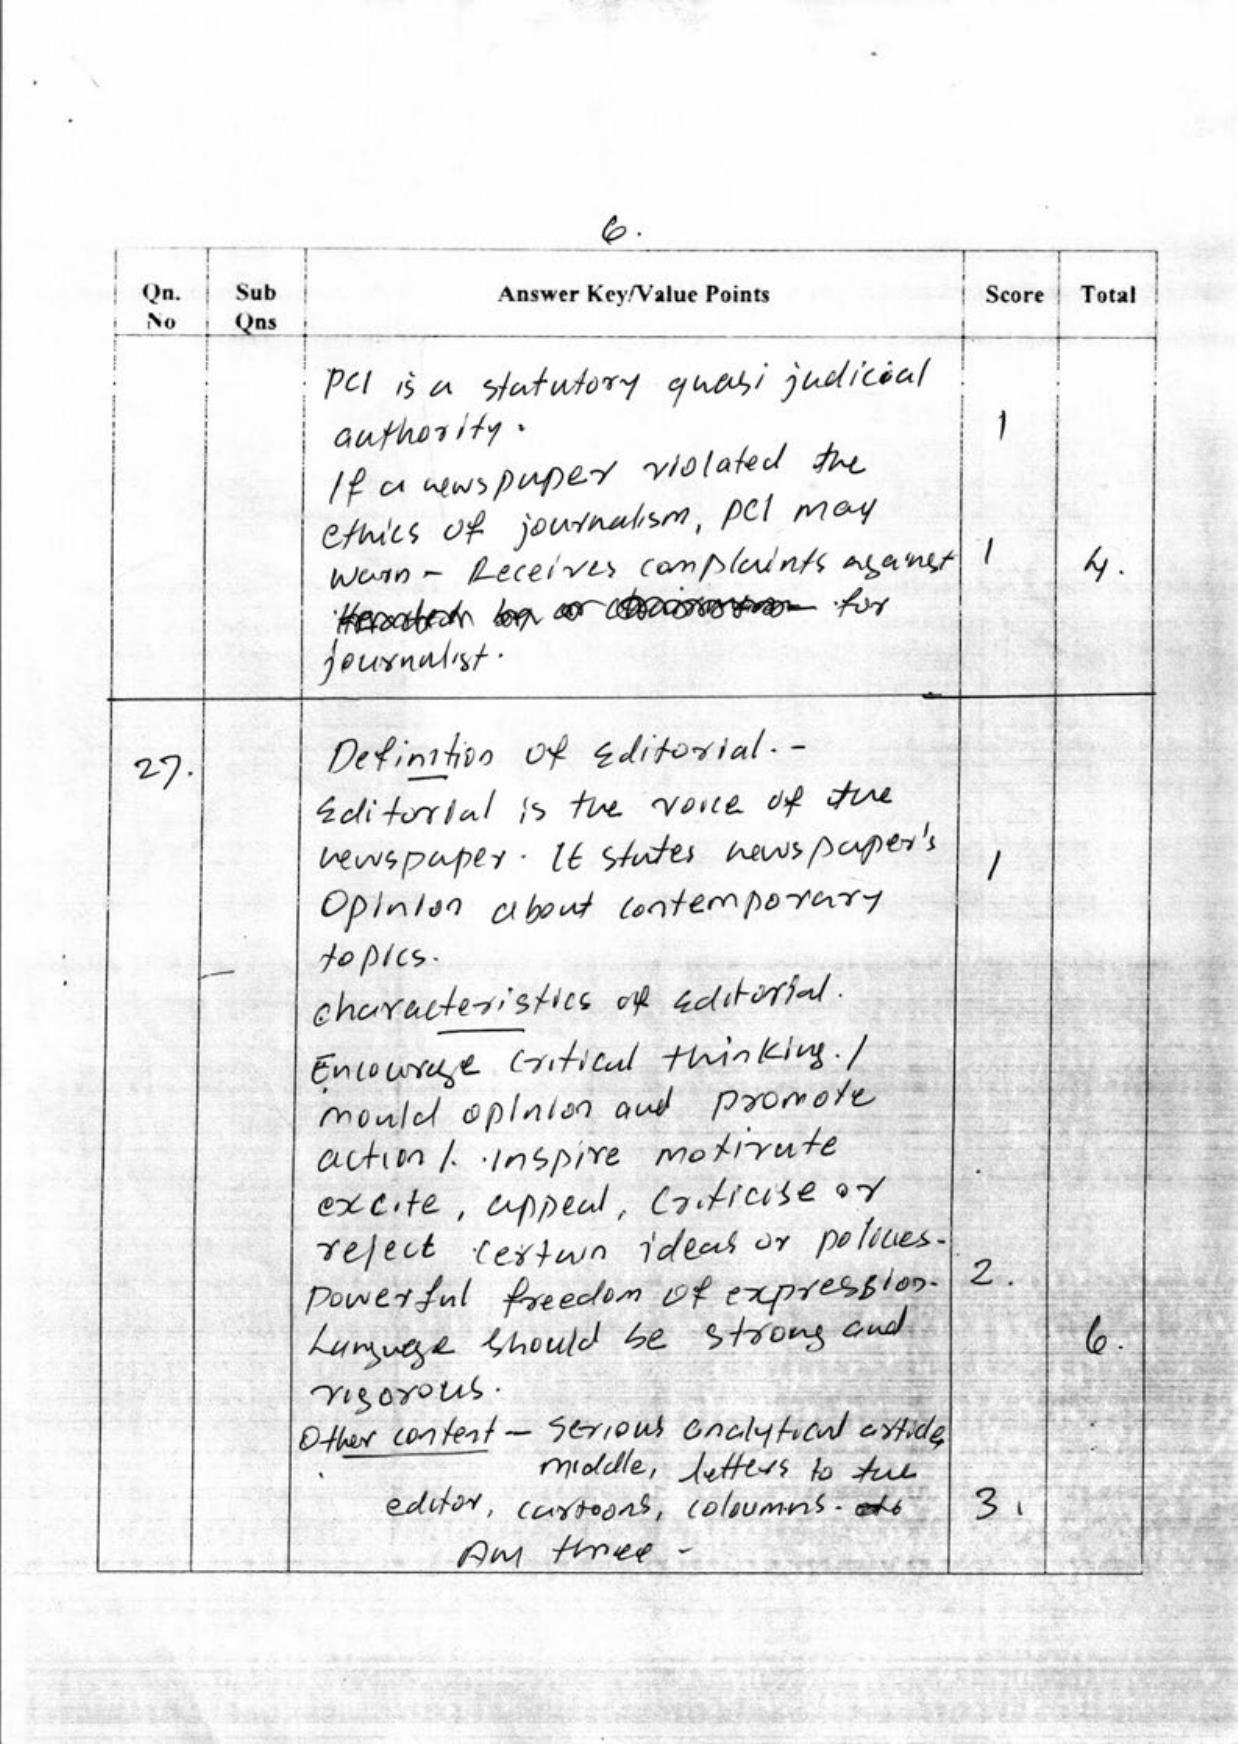 6.
Qn. No Sub Qns Answer Key/Value Points Score Total
PCI is a statutory quasi judicial
authority. 1
If a newspaper violated the
ethics of journalism, PCI may
warn - Receives complaints against 1 4.
for
journalist.
27. Definition of Editorial. -
Editorial is the voice of the
newspaper. It states newspaper's 1
Opinion about contemporary
topics.
characteristics of Editorial.
Encourage critical thinking. /
mould opinion and promote
action /. inspire motivate
excite, appeal, criticise or
reject certain ideas or policies.
powerful freedom of expression. 2.
Language should be strong and 6.
rigorous.
Other content - Serious analytical article,
middle, letters to the
editor, cartoons, coloumns. 3.
three -